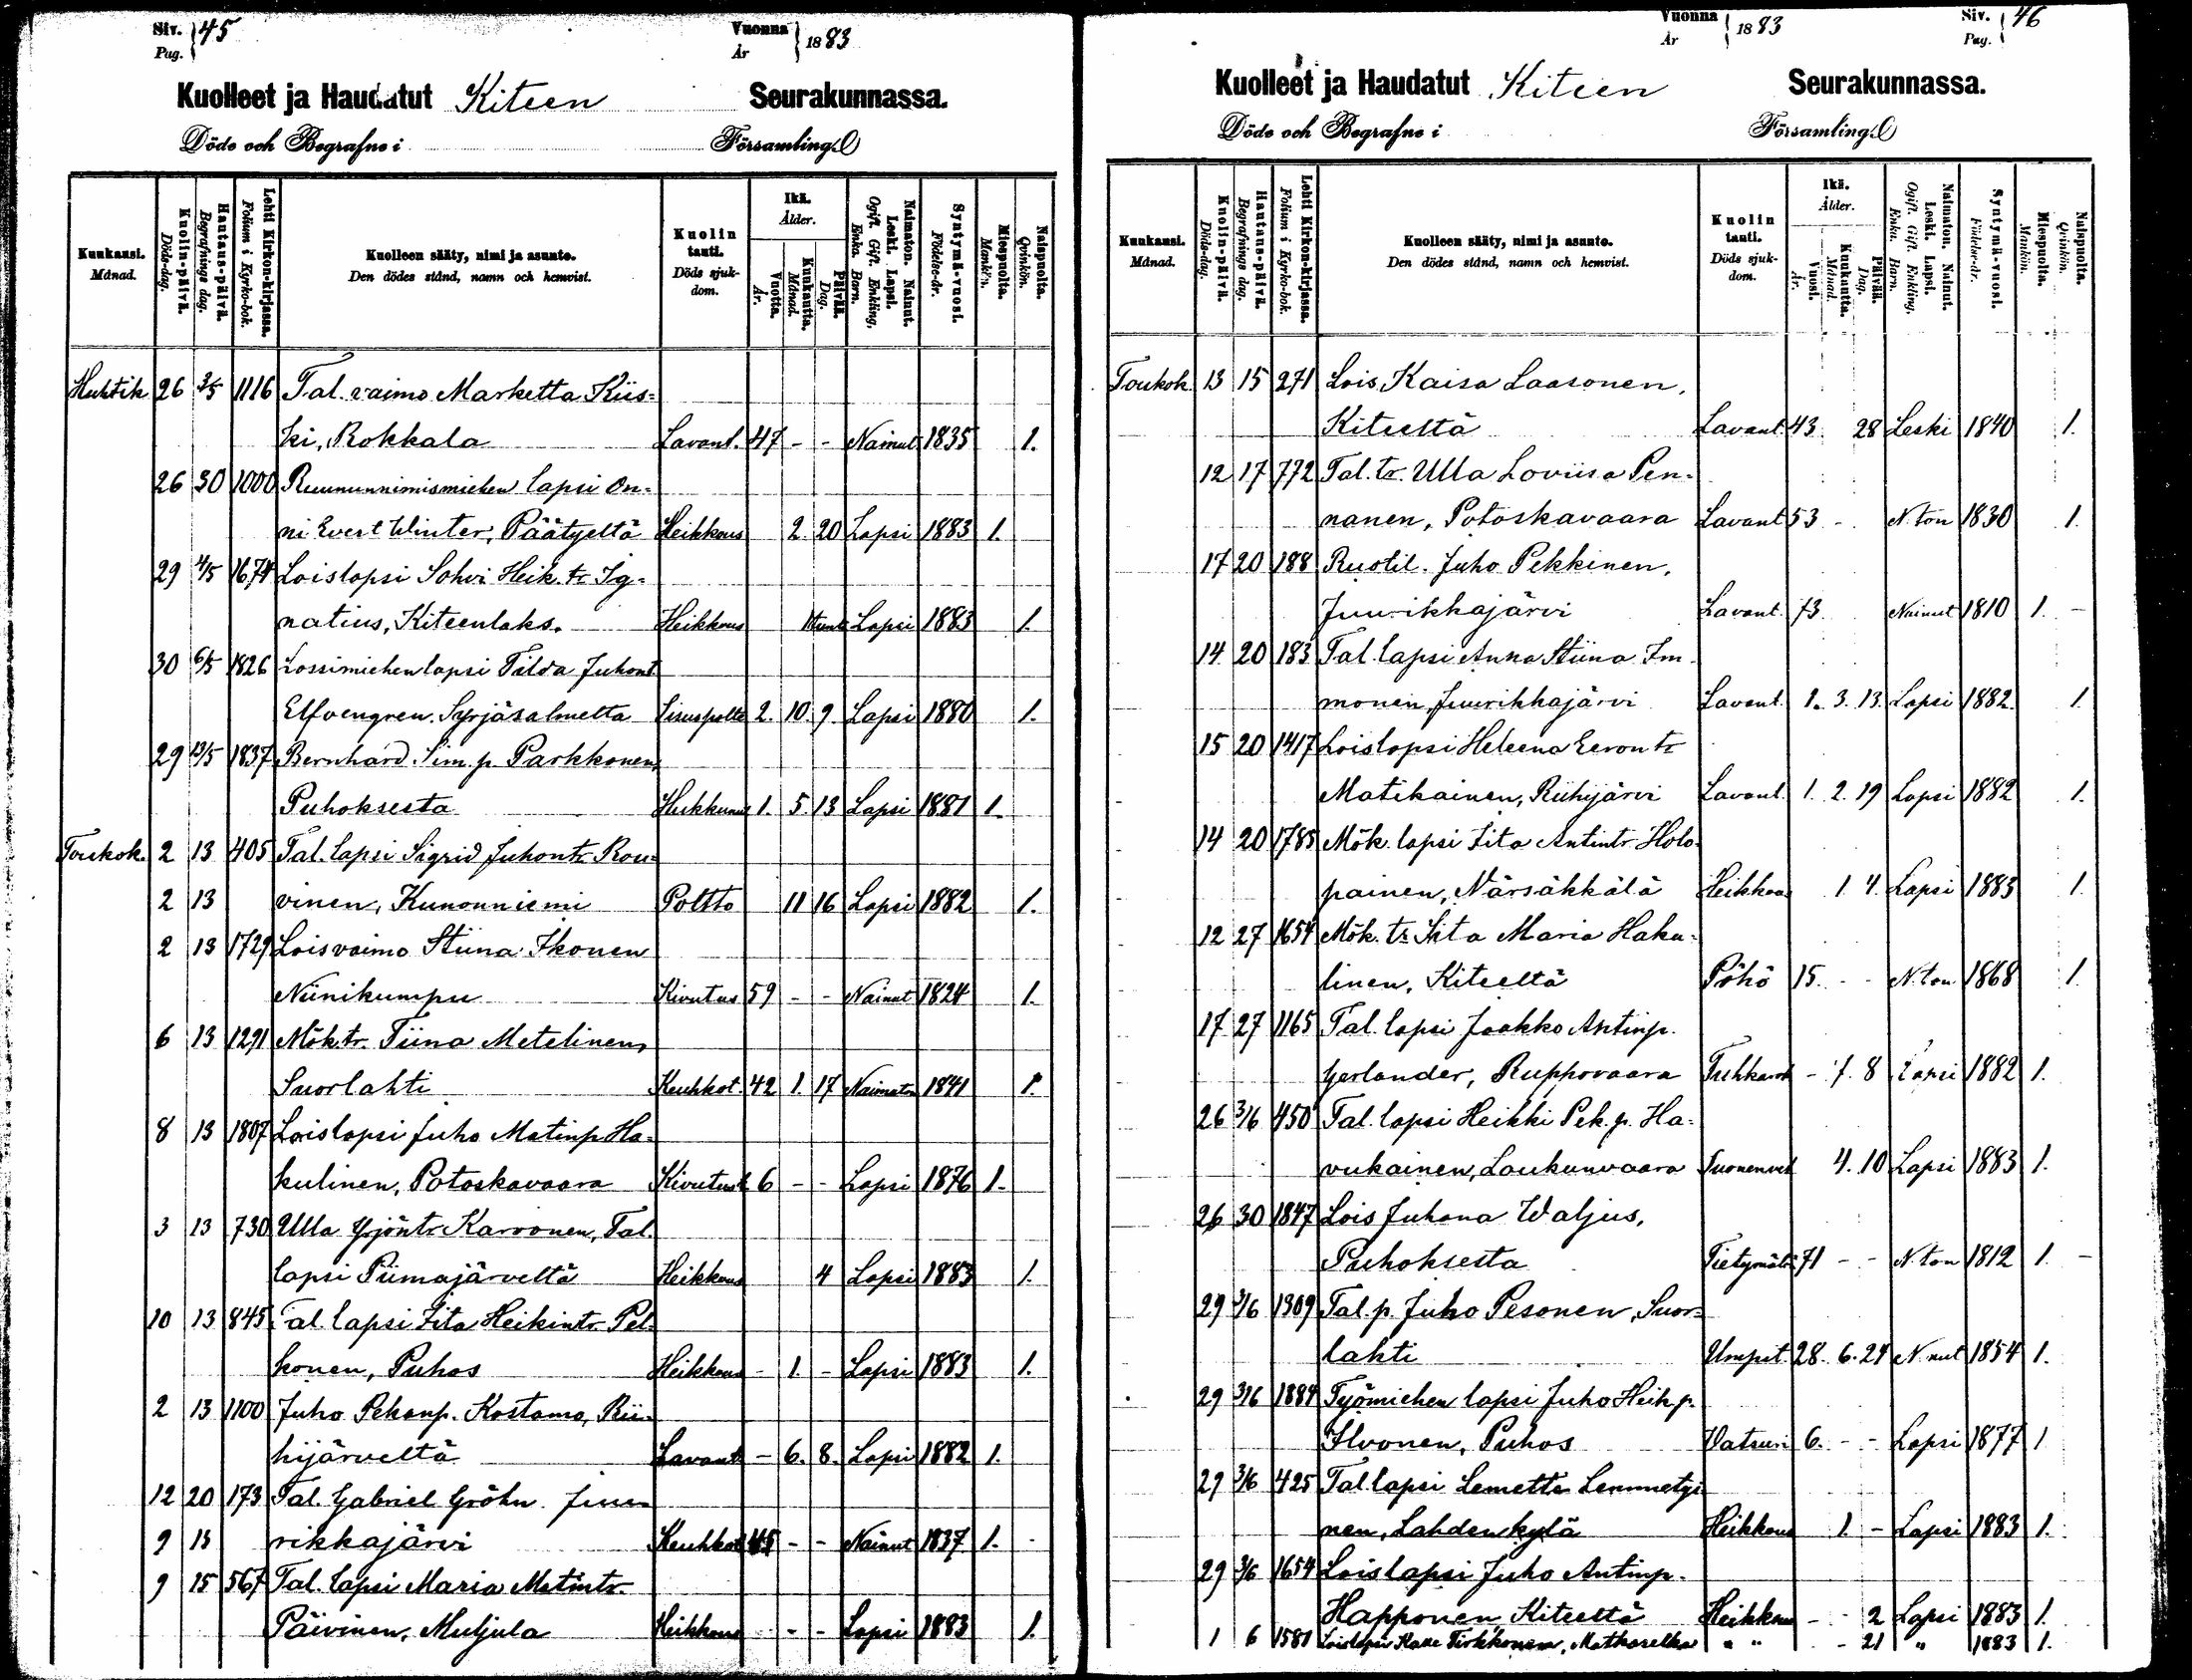 Siv. 45
Pag.
Vuonna 1883
År
Kuolleet ja Haudatut Kiteen Seurakunnassa.
Döde och Begrafne i Församling.
Kuukausi. Månad.
Kuolin-päivä. Döds-dag.
Hautaus-päivä. Begrafnings dag.
Lehti Kirkon-kirjassa. Folium i Kyrko-bok.
Kuolleen sääty, nimi ja asunto.
Den dödes stånd, namn och hemvist.
Kuolin tauti. Döds sjukdom.
Ikä. Ålder.
Vuotta. År.
Kuukautta. Månad.
Päivää. Dag.
Naimaton. Nainut. Leski. Lapsi. Ogift. Gift. Enkling. Enka. Barn.
Syntymä-vuosi. Födelse-år.
Miespuolta. Mankön.
Naispuolta. Qvinkön.
Huhtik 26 3/5 1116 Tal. vaimo Marketta Kiis-
ki, Rokkala Lavant. 47 - - Nainut 1835 1.
26 30 1000 Ruununnimismiehen lapsi On-
ni Evert Winter, Päätyeltä Heikkous 2. 20 Lapsi 1883 1.
29 4/5 1674 Loislapsi Sohvi Heik. tr Ig-
natius, Kiteenlaks. Heikkous Lapsi 1883 1.
30 6/5 1826 Lossimiehen lapsi Tilda Juhont.
Elfvengren. Syrjäsalmelta 2. 10. 9. Lapsi 1880 1.
29 13/5 1837 Bernhard Sim. p. Parkkonen,
Puhoksesta Hukkunut 1. 5. 13 Lapsi 1881 1.
Toukok. 2 13 405 Tal. lapsi Sigrid Juhontr. Rou-
2 13 vinen, Kunonniemi Poltto 11 16 Lapsi 1882 1.
2 13 1729 Loisvaimo Stiina Ikonen
Niinikumpu Kivutus 59 - - Nainut 1824 1.
6 13 1291 Mök.tr. Tiina Metelinen,
Suorlahti Keuhkot. 42 1. 17 Naimaton 1841 1.
8 13 1807 Loislapsi Juho Matinp. Ha-
kulinen, Potoskavaara 6 - - Lapsi 1876 1.
3 13 730 Ulla Yrjöntr. Karvonen, Tal.
lapsi Piimajärveltä Heikkous 4 Lapsi 1883 1.
10 13 845 Tal. lapsi Iita Heikintr. Pel-
konen, Puhos Heikkous - 1. - Lapsi 1883 1.
2 13 1100 Juho Pekanp. Kostamo, Rii-
hijärveltä Lavant - 6. 8. Lapsi 1882 1.
12 20 173 Tal. Gabriel Gröhn. Juu-
9 13 rikkajärvi Keuhkot 45 - - Nainut 1837 1.
9 15 567 Tal. lapsi Maria Matintr.
Päivinen, Muljula Heikkous - - Lapsi 1883 1.
Vuonna 1883
År
Siv. 46
Pag.
Kuolleet ja Haudatut Kiteen Seurakunnassa.
Döde och Begrafne i Församling.
Kuukausi. Månad.
Kuolin-päivä. Döds-dag.
Hautaus-päivä. Begrafnings dag.
Lehti Kirkon-kirjassa. Folium i Kyrko-bok.
Kuolleen sääty, nimi ja asunto.
Den dödes stånd, namn och hemvist.
Kuolin tauti. Döds sjukdom.
Ikä. Ålder.
Vuosi. År.
Kuukautta. Månad.
Päivää. Dag.
Naimaton. Nainut. Leski. Lapsi. Ogift. Gift. Enkling. Enka. Barn.
Syntymä-vuosi. Födelse-år.
Miespuolta. Mankön.
Naispuolta. Qvinkön.
Toukok. 13 15 271 Lois Kaisa Laasonen,
Kiteeltä Lavant. 43 28 Leski 1840 1.
12 17 772 Tal. tr. Ulla Loviisa Pen-
nanen, Potoskavaara Lavant 53 - N. ton 1830 1.
17 20 188 Ruotil. Juho Pekkinen,
Juurikkajärvi Lavant. 73 Nainut 1810 1. -
14 20 183 Tal. lapsi Anna Stiina Im-
monen, Juurikkajärvi Lavant. 1. 3. 13. Lapsi 1882 1.
15 20 1417 Loislapsi Heleena Eerontr
Matikainen, Riihijärvi Lavant. 1. 2. 19 Lapsi 1882 1.
14 20 1785 Mök. lapsi Iita Antintr. Holo-
painen, Närsäkkälä Heikkous 1. 4. Lapsi 1883 1.
12 27 1654 Mök. tr. Iita Maria Haku-
linen, Kiteeltä Pöhö 15. - - N. ton 1868 1.
17 27 1165 Tal. lapsi Jaakko Antinp.
Gerlander, Ruppovaara Tuhkarok - 7. 8 Lapsi 1882 1.
26 3/6 450 Tal. lapsi Heikki Pek. p. Ha-
vukainen, Loukunvaara 4. 10 Lapsi 1883 1.
26 30 1847 Lois Juhana Waljus,
Puhoksesta Tietymätö 71 - - N. ton 1812 1. -
29 3/6 1309 Tal. p. Juho Pesonen, Suor-
lahti Umpit. 28. 6. 24 N. nut 1854 1.
29 3/6 1884 Työmiehen lapsi Juho Heik p.
Ilvonen, Puhos 6. - - Lapsi 1877 1
29 3/6 425 Tal. lapsi Lemetti Lemmetyi-
nen, Lahdenkylä Heikkous 1. - Lapsi 1883 1.
29 3/6 1654 Loislapsi Juho Antinp.
Happonen, Kiteeltä Heikkous - - 2 Lapsi 1883 1.
1 6 1581 Loislapsi Kalle Tirkkonen, Matkaselkä " " - 21 " 1883 1.